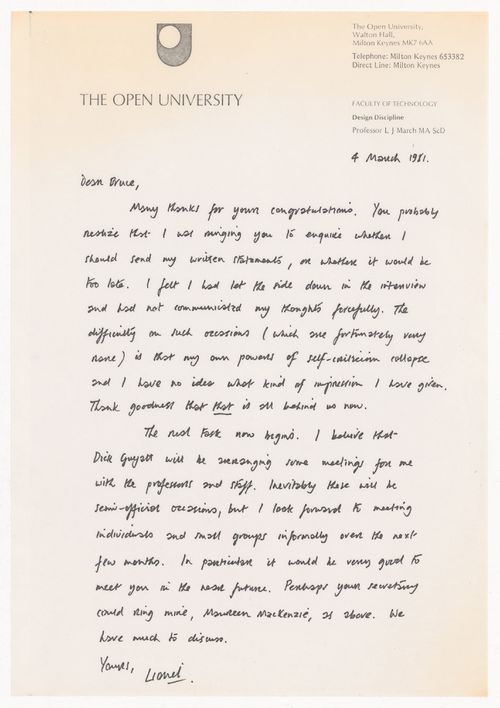 The Open University,
Walton Hall,
Milton Keynes MK7 6AA
Telephone: Milton Keynes 653382
Direct Line: Milton Keynes
THE OPEN UNIVERSITY
FACULTY OF TECHNOLOGY
Design Discipline
Professor L J March MA ScD
4 March 1981.
Dear Bruce,
Many thanks for your congratulations. You probably
realize that I was ringing you to enquire whether I
should send my written statements, or whether it would be
too late. I felt I had let the side down in the interview
and had not communicated my thoughts forcefully. The
difficulty on such occasions (which are fortunately very
rare) is that my own powers of self-criticism collapse
and I have no idea what kind of impression I have given.
Thank goodness that that is all behind us now.
The real task now begins. I believe that
Dick Guyatt will be arranging some meetings for me
with the professors and staff. Inevitably these will be
semi-official occasions, but I look forward to meeting
individuals and small groups informally over the next
few months. In particular it would be very good to
meet you in the near future. Perhaps your secretary
could ring mine, Maureen Mackenzie, as above. We
have much to discuss.
Yours,
Lionel.